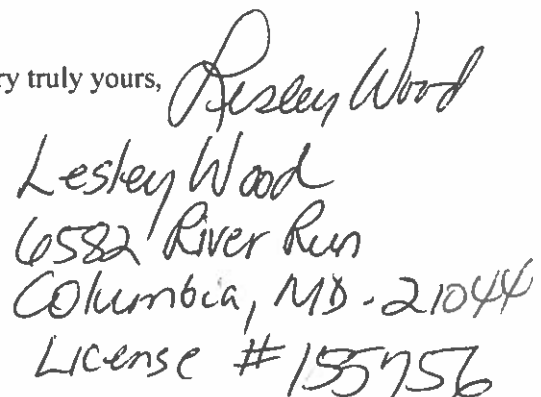 ry truly yours, Lesley Wood
Lesley Wood
6582 River Run
Columbia, MD - 21044
License # 155756